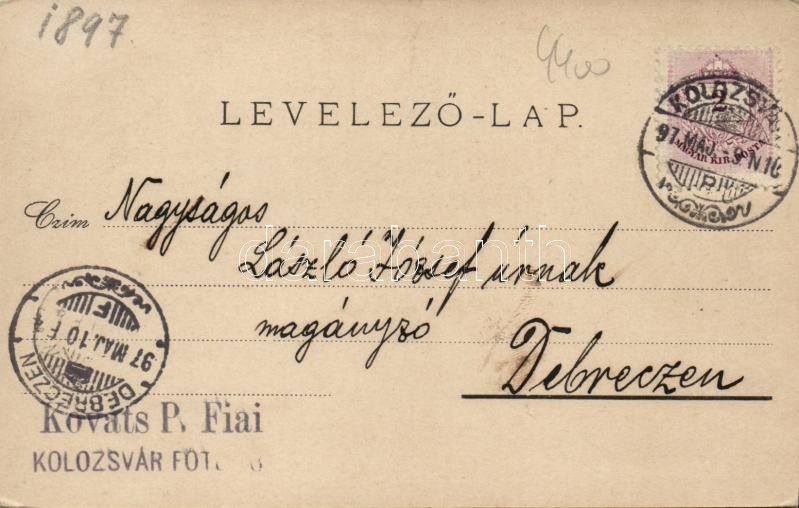 1897
4400
LEVELEZŐ-LAP.
2
MAGYAR KIR. POSTA
KOLOZSVÁR
97 MÁJ. 9 N 10
Czim Nagyságos
László József úrnak
magányzó
Debreczen
darabanth.com
DEBRECZEN
97 MÁJ. 10 F
F
Kováts P. Fiai
KOLOZSVÁR FŐT